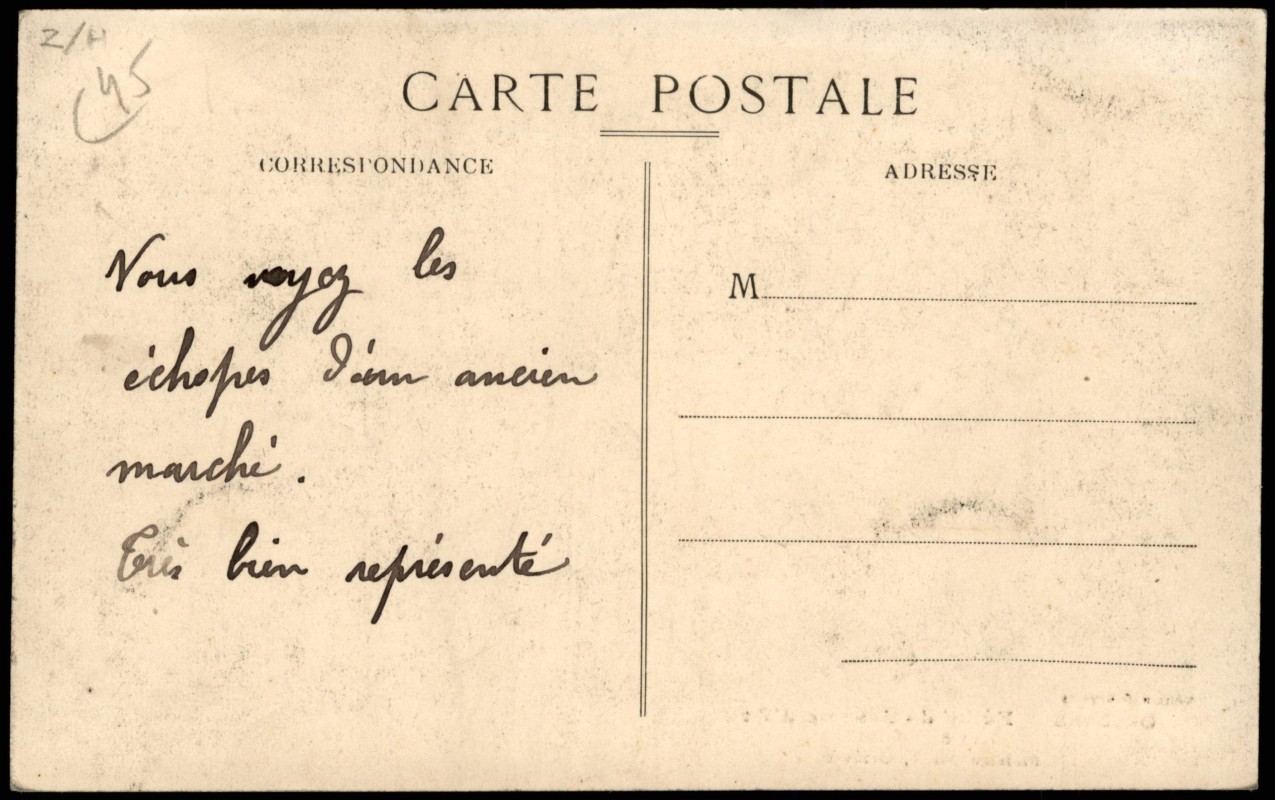 Z/H
45
CARTE POSTALE
CORRESPONDANCE
ADRESSE
Vous voyez les
échopes d'un ancien
marché.
Très bien représenté
M